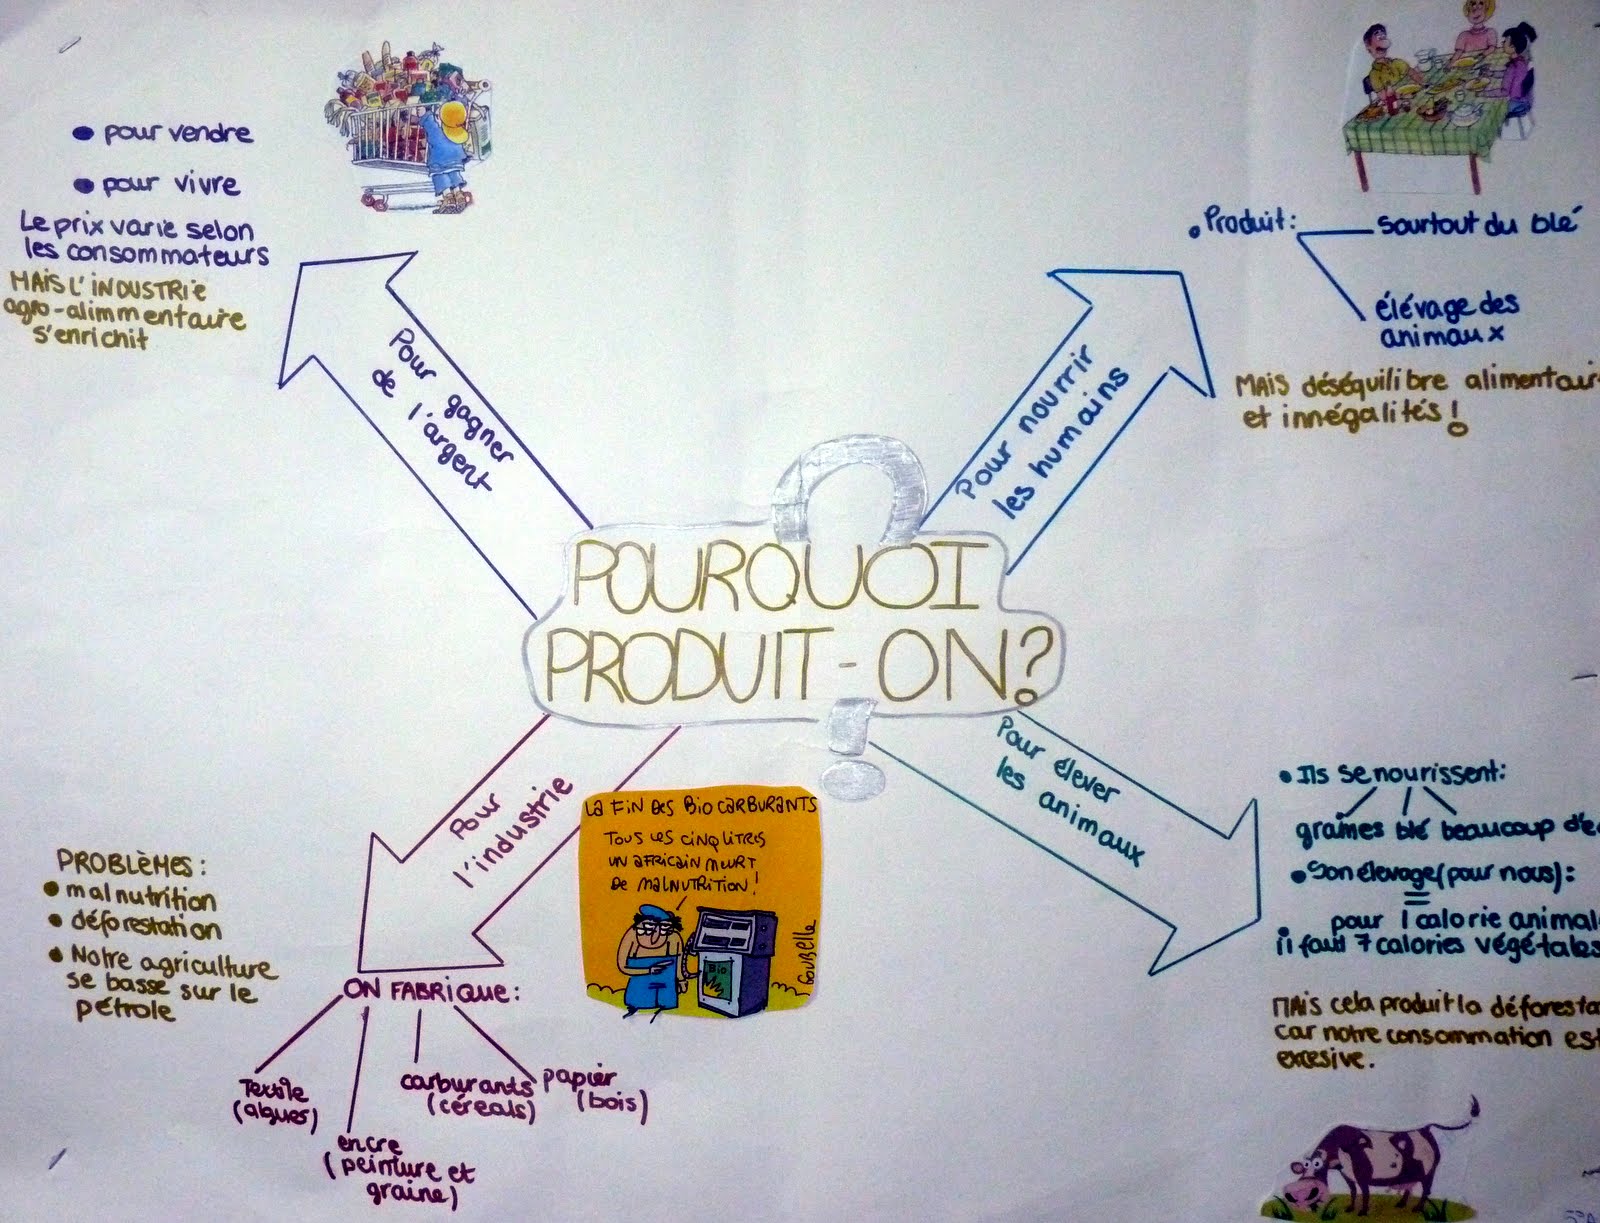 POURQUOI
PRODUIT-ON?
Pour gagner
de l'argent
• pour vendre
• pour vivre
Le prix varie selon
les consommateurs
MAIS L'INDUSTRIE
agro-alimmentaire
s'enrichit
Pour nourrir
les humains
• Produit:
sourtout du blé
élévage des
animaux
MAIS déséquilibre alimentair
et innégalités!
Pour élever
les animaux
• Ils se nourissent:
graines blé beaucoup d'e
• Son élevage (pour nous):
pour 1 calorie animal
il faut 7 calories végétales
MAIS cela produit la déforesta
car notre consommation est
excesive.
Pour
l'industrie
ON FABRIQUE:
Textile
(algues)
encre
(peinture et
graine)
carburants
(céreals)
papier
(bois)
PROBLÈMES:
• malnutrition
• déforestation
• Notre agriculture
se basse sur le
pétrole
LA FIN DES BIOCARBURANTS
TOUS LES CINQ LITRES
UN AFRICAIN MEURT
DE MALNUTRITION!
Bio
GOUBELLE